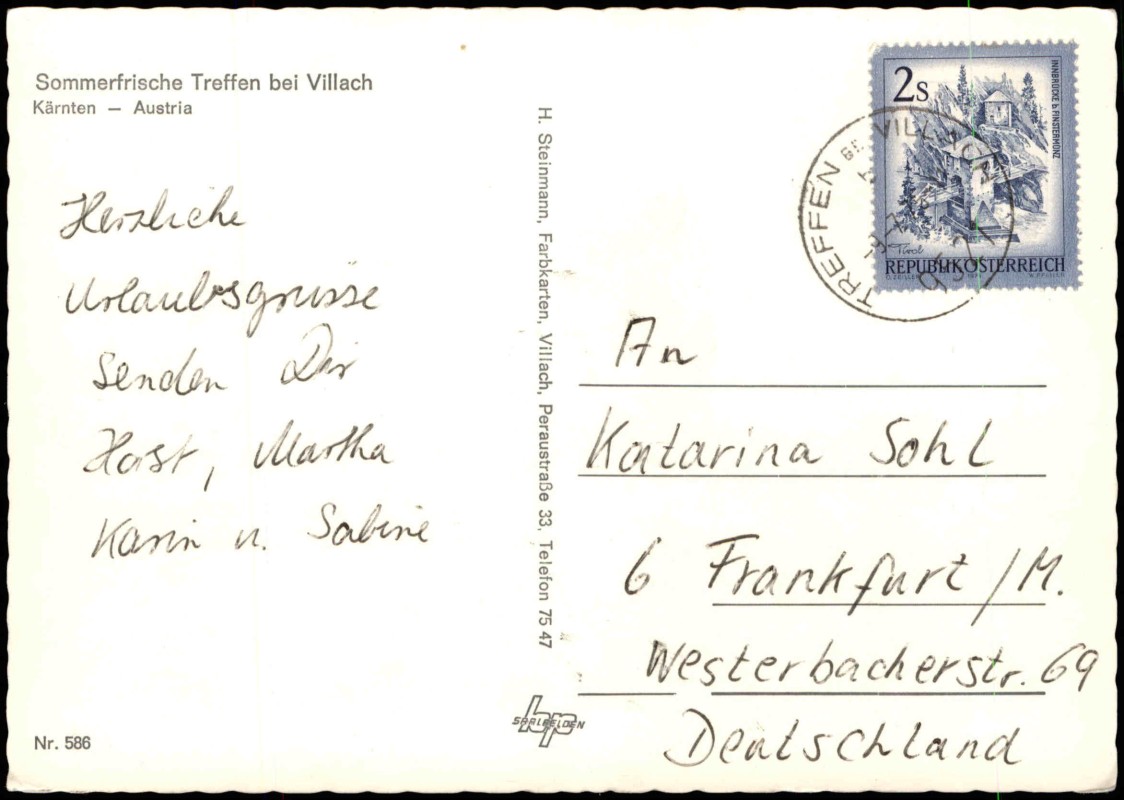 Sommerfrische Treffen bei Villach
Kärnten — Austria
Herzliche
Urlaubsgrüsse
senden Dir
Horst, Martha
Karin u. Sabine
Nr. 586
H. Steinmann, Farbkarten, Villach, Peraustraße 33, Telefon 75 47
SAALFELDEN
2S
INNBRÜCKE b FINSTERMÜNZ
Tirol
REPUBLIK ÖSTERREICH
TREFFEN BEI VILLACH
An
Katarina Sohl
6 Frankfurt/M.
Westerbacherstr. 69
Deutschland